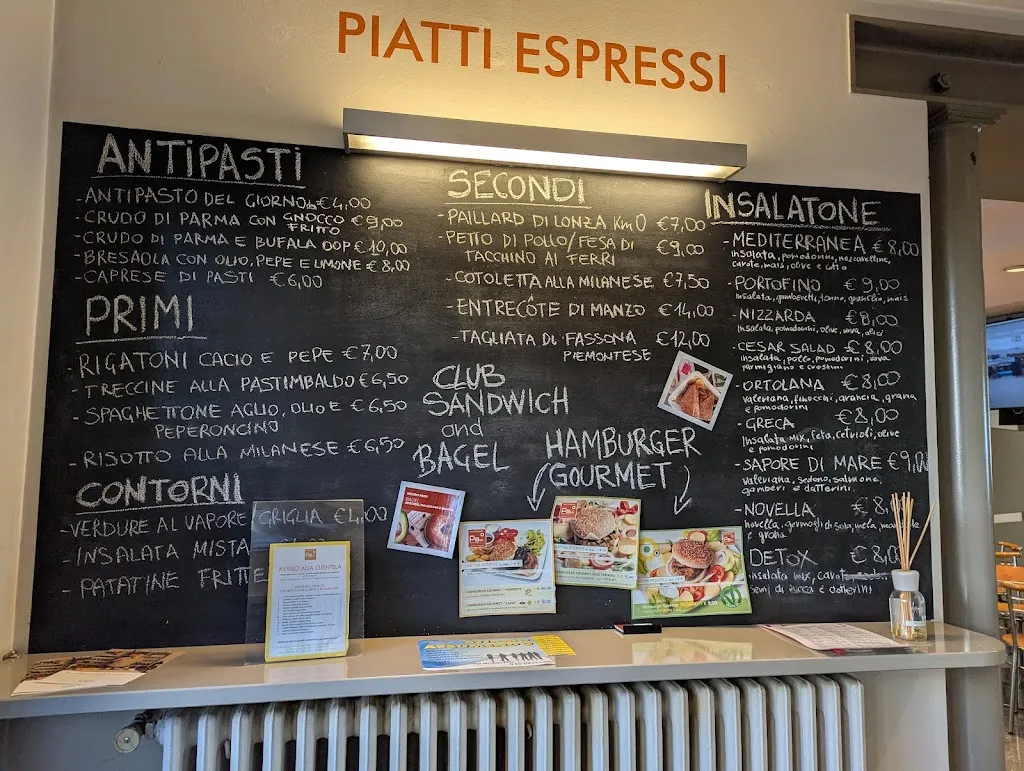 PIATTI ESPRESSI
ANTIPASTI
-ANTIPASTO DEL GIORNO da € 4,00
-CRUDO DI PARMA CON GNOCCO FRITTO € 9,00
-CRUDO DI PARMA E BUFALA DOP € 10,00
-BRESAOLA CON OLIO, PEPE E LIMONE € 8,00
-CAPRESE DI PASTI € 6,00
PRIMI
-RIGATONI CACIO E PEPE € 7,00
-TRECCINE ALLA PASTIMBALDO € 6,50
-SPAGHETTONE AGLIO, OLIO E € 6,50
PEPERONCINO
-RISOTTO ALLA MILANESE € 6,50
CONTORNI
-VERDURE AL VAPORE GRIGLIA € 4,00
-INSALATA MISTA
-PATATINE FRITTE
SECONDI
-PAILLARD DI LONZA Km 0 € 7,00
-PETTO DI POLLO/FESA DI € 9,00
TACCHINO AI FERRI
-COTOLETTA ALLA MILANESE € 7,50
-ENTRECÔTE DI MANZO € 14,00
-TAGLIATA DI FASSONA € 12,00
PIEMONTESE
CLUB
SANDWICH
and
BAGEL
HAMBURGER
GOURMET
INSALATONE
-MEDITERRANEA € 8,00
insalata, pomodorini, mozzarelline,
carote, mais, olive e
-PORTOFINO € 9,00
insalata, gamberetti, tonno, mais
-NIZZARDA € 8,00
insalata, pomodorini, olive, uova, alici
-CESAR SALAD € 8,00
insalata, pollo, pomodorini, uova
parmigiano e crostini
-ORTOLANA € 8,00
valeriana, finocchi, arancia, grana
e pomodorini
-GRECA € 8,00
Insalata mix, feta, cetrioli, olive
e pomodorini
-SAPORE DI MARE € 9,00
valeriana, sedano, salmone,
gamberi e datterini
-NOVELLA € 8,
novella, germogli di soia, mela,
e grana
DETOX € 8,00
insalata mix,
semi di zucca e datterini
AVVISO ALLA CLIENTELA
BAGEL